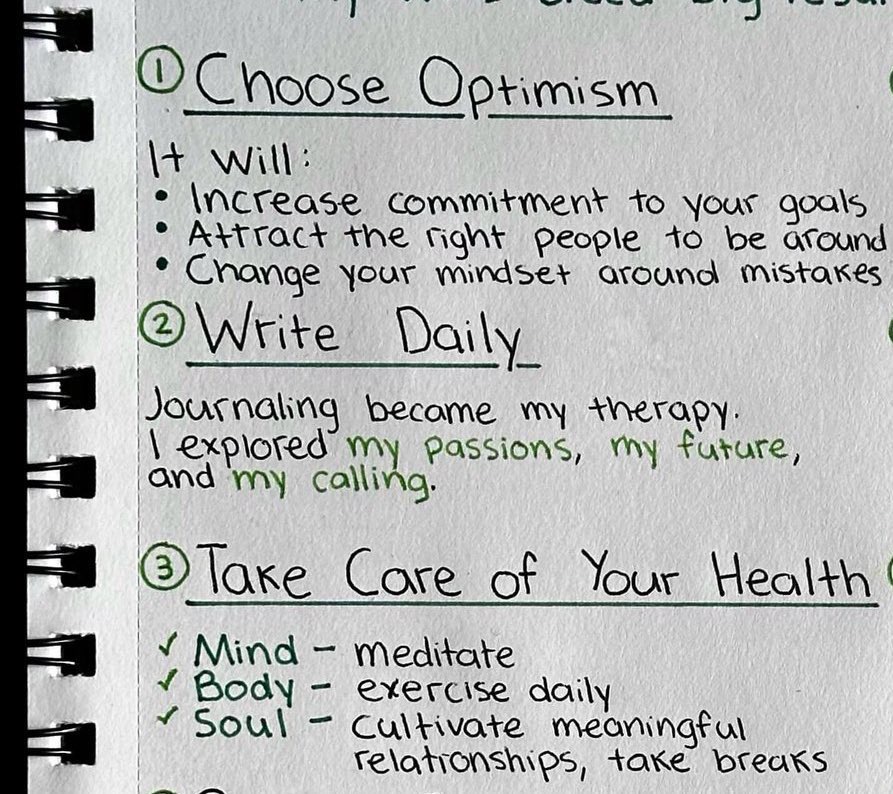 ① Choose Optimism
It Will:
• Increase commitment to your goals
• Attract the right people to be around
• Change your mindset around mistakes
② Write Daily
Journaling became my therapy.
I explored my passions, my future,
and my calling.
③ Take Care of Your Health
✓ Mind - meditate
✓ Body - exercise daily
✓ Soul - cultivate meaningful
relationships, take breaks